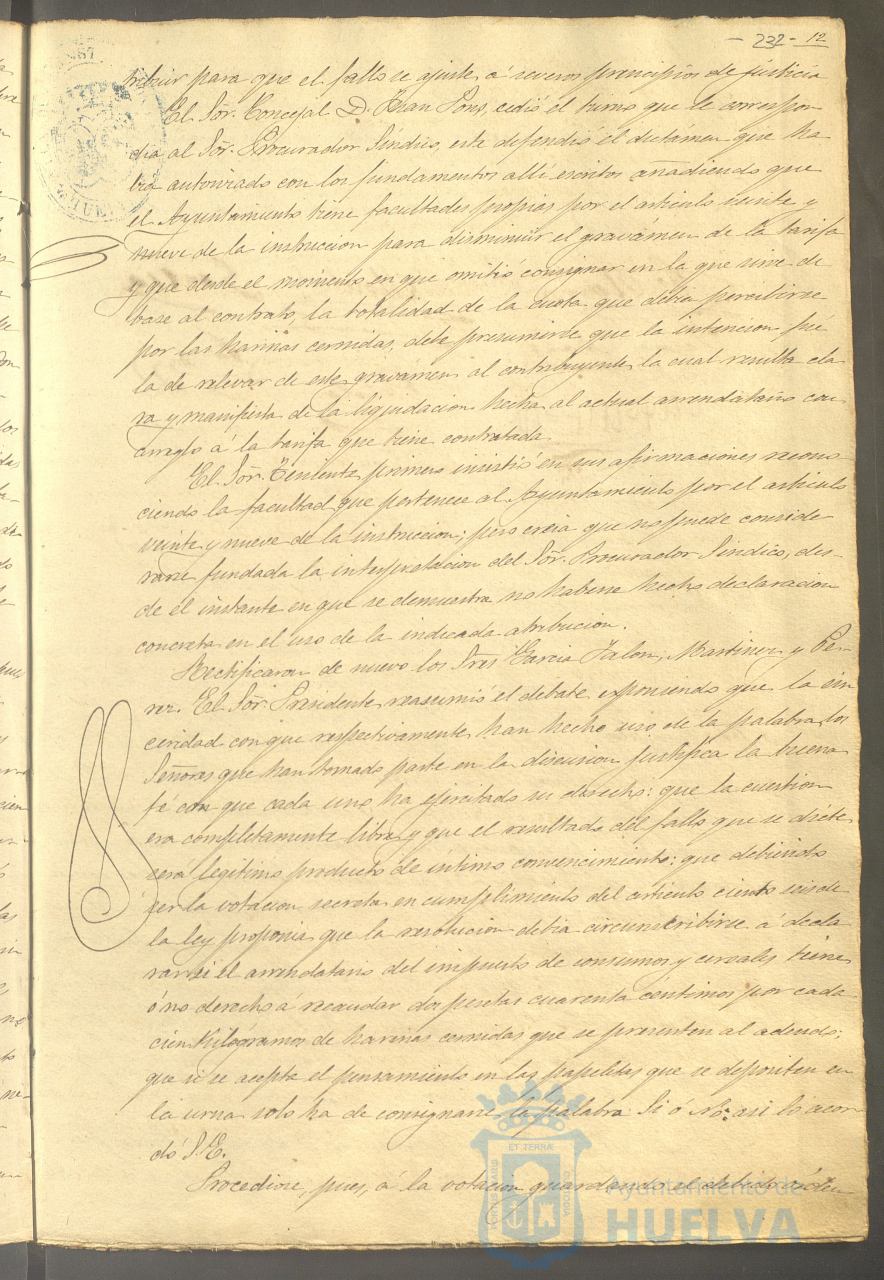 - 232 - 12
tribuir para que el fallo se ajuste á severos principios de justicia
El Sõr. Concejal D. Juan Pons, cedió el turno que le correspon
dia al Sõr. Procurador Síndico, este defendió el dictámen que ha
bia autorizado con los fundamentos allí escritos añadiendo que
el Ayuntamiento tiene facultades propias por el artículo veinte y
nueve de la instruccion para disminuir el gravámen de la tarifa
y que desde el momento en que omitió consignar en la que sirve de
base al contrato, la totalidad de la cuota que debia percibirse
por las harinas cernidas, debe presumirse que la intencion fué
la de relevar de este gravamen al contribuyente, la cual resulta cla
ra y manifiesta de la liquidacion hecha al actual arrendatario con
arreglo á la tarifa que tiene contratada.
El Sõr. Teniente primero insistió en sus afirmaciones recono
ciendo la facultad que pertenece al Ayuntamiento por el artículo
veinte y nueve de la instruccion; pero creia que no puede conside
rarse fundada la interpretacion del Sõr. Procurador Sindico, des-
de el instante en que se demuestra no haberse hecho declaracion
concreta en el uso de la indicada atribucion.
Rectificaron de nuevo los Sres Garcia Jalon, Martinez y Pe-
rez. El Sõr. Presidente reasumió el debate, exponiendo que la sin
ceridad con que respectivamente han hecho uso de la palabra los
Señores que han tomado parte en la discusion justifica la buena
fé con que cada uno ha ejercitado su derecho: que la cuestion
era completamente libre y que el resultado del fallo que se dicte
será legítimo producto de íntimo convencimiento: que debiendo
ser la votacion secreta en cumplimiento del artículo ciento seis de
la ley proponia que la resolucion debia circunscribirse á decla
rar si el arrendatario del impuesto de consumos y cereales tiene
ó no derecho á recaudar dos pesetas cuarenta céntimos por cada
cien Kilógramos de harinas cernidas que se presenten al adeudo;
que si se acepta el pensamiento en las papeletas que se depositen en
la urna solo ha de consignarse la palabra Si ó No: asi lo acor
dó S. E.
Procediose, pues, á la votacion guardando el debido órden
ET TERRÆ
Ayuntamiento de
HUELVA